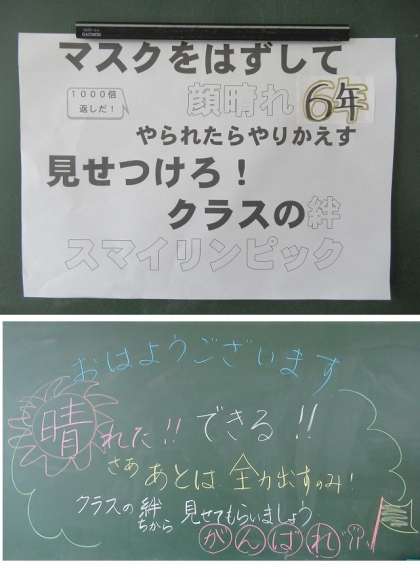 マスクをはずして
1000倍
返しだ！
顔晴れ 6年
やられたらやりかえす
見せつけろ！
クラスの絆
スマイリンピック
おはようございます
晴れた!! できる!!
さああとは全力出すのみ!
クラスの絆 見せてもらいましょう
ちから
がんばれ